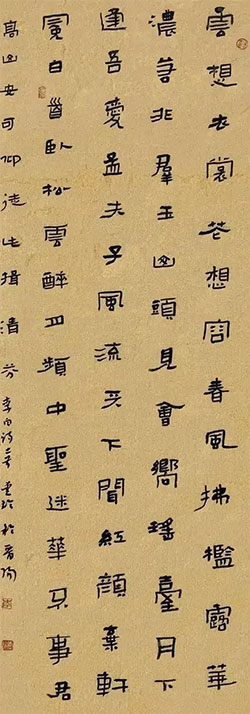 雲想衣裳花想容春風拂檻露華
濃若非羣玉山頭見會嚮瑤臺月下
逢吾愛孟夫子風流天下聞紅顏棄軒
冕白首臥松雲醉月頻中聖迷華不事君
高山安可仰徒此揖清芬 李白詩二首